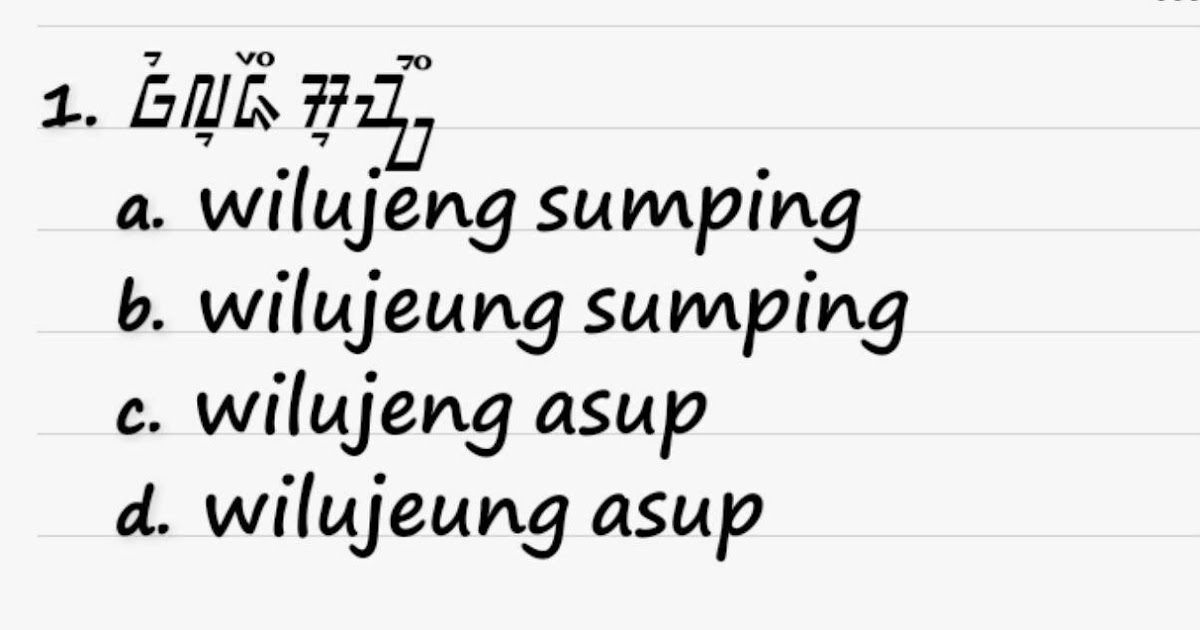 1. ᮝᮤᮜᮥᮏᮨᮀ ᮞᮥᮙ᮫ᮕᮤᮀ
a. wilujeng sumping
b. wilujeung sumping
c. wilujeng asup
d. wilujeung asup